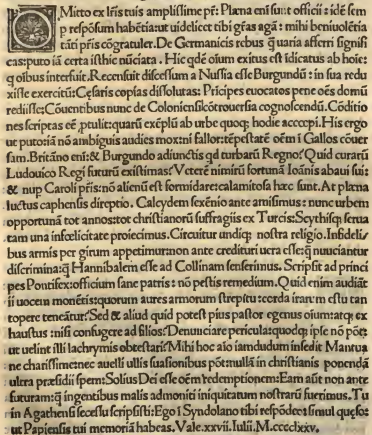 OMitto ex lr̃is tuis amplissime pr̃: Plæna eni sunt officii: idẽ sem
p respõsum habẽtia:ut uidelicet tibi gr̃as agã: mihi beniuolẽtia
tãti pr̃is cõgratuler. De Germanicis rebus q̃ uaria afferri signifi
cas:puto iã certa isthic nũciata. Hic qdẽ oium exitus est idicatus ab hoie:
q oibus interfuit. Recensuit discessum a Nussia esse Burgundũ: in sua redu
xisse exercitũ: Cęsaris copias dissolutas: Pricipes euocatos pene oẽs domũ
rediisse: Cõuentibus nunc de Coloniensi cõtrouersia cognoscendũ. Cõditio
nes scriptas eẽ, ptulit: quarũ exẽplũ ab urbe quoq; hodie accepi. His ergo
ut puto: iã nõ ambiguis audies mox: ni fallor: tẽpestatẽ oẽm i Gallos cõuer
sam. Britãno eni: & Burgundo adiunctis qd turbarũ Regno? Quid curarũ
Ludouico Regi futurũ existimas? Veterẽ nimirũ fortunã Ioãnis abaui sui:
& nup Caroli pr̃is: nõ alienũ est formidare: calamitosa hæc sunt. At plæna
luctus caphensis direptio. Calcydem sexẽnio ante amisimus: nunc urbem
opportunã tot annos: tot christianorũ suffragiis ex Turcis: Scythisq; serua
tam una infœlicitate proiecimus. Circuitur undiq; nostra religio. Infideli/
bus armis per girum appetimur: non ante credituri uera esse: q̃ nuuciantur
discrimina: q̃ Hannibalem esse ad Collinam senserimus. Scripsit ad princi
pes Pontifex: officium sane patris: nõ pestis remedium. Quid enim audiãt
ii uocem monẽtis: quorum aures armorum strepitu: corda irarum estu tan
topere teneãtur? Sed & aliud quid potest pius pastor egenus oium: atq; ex
haustus: nisi confugere ad filios? Denunciare pericula: quodq; ipse nõ põt:
ut uelint illi lachrymis obtestari? Mihi hoc aio iamdudum insedit Mantua
ne charissime: nec auelli ullis suasionibus põt: nullã in christianis ponendã
ultra præsidii spem: Solius Dei esse oẽm redemptionem: Eam aũt non ante
futuram: q̃ ingentibus malis admoniti iniquitatum nostrarũ fuerimus. Tu
in Agathensi secessu scripsisti: Ego i Syndolano tibi respõdeo: simul quęso:
ut Papiensis tui memoriã habeas. Vale. xxvii. Iulii. M.cccclxxv.